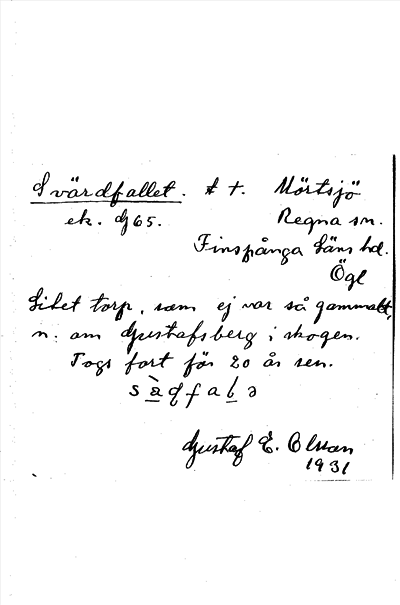 Svärdfallet. t t. Mörtsjö
ek. dj 65. Regna sn.
Finspånga läns hd.
Ögl
Litet torp, som ej var så gammalt,
n. om Gustafsberg i skogen.
Togs fort för 20 år sen.
Gustaf E. Olsson
1931